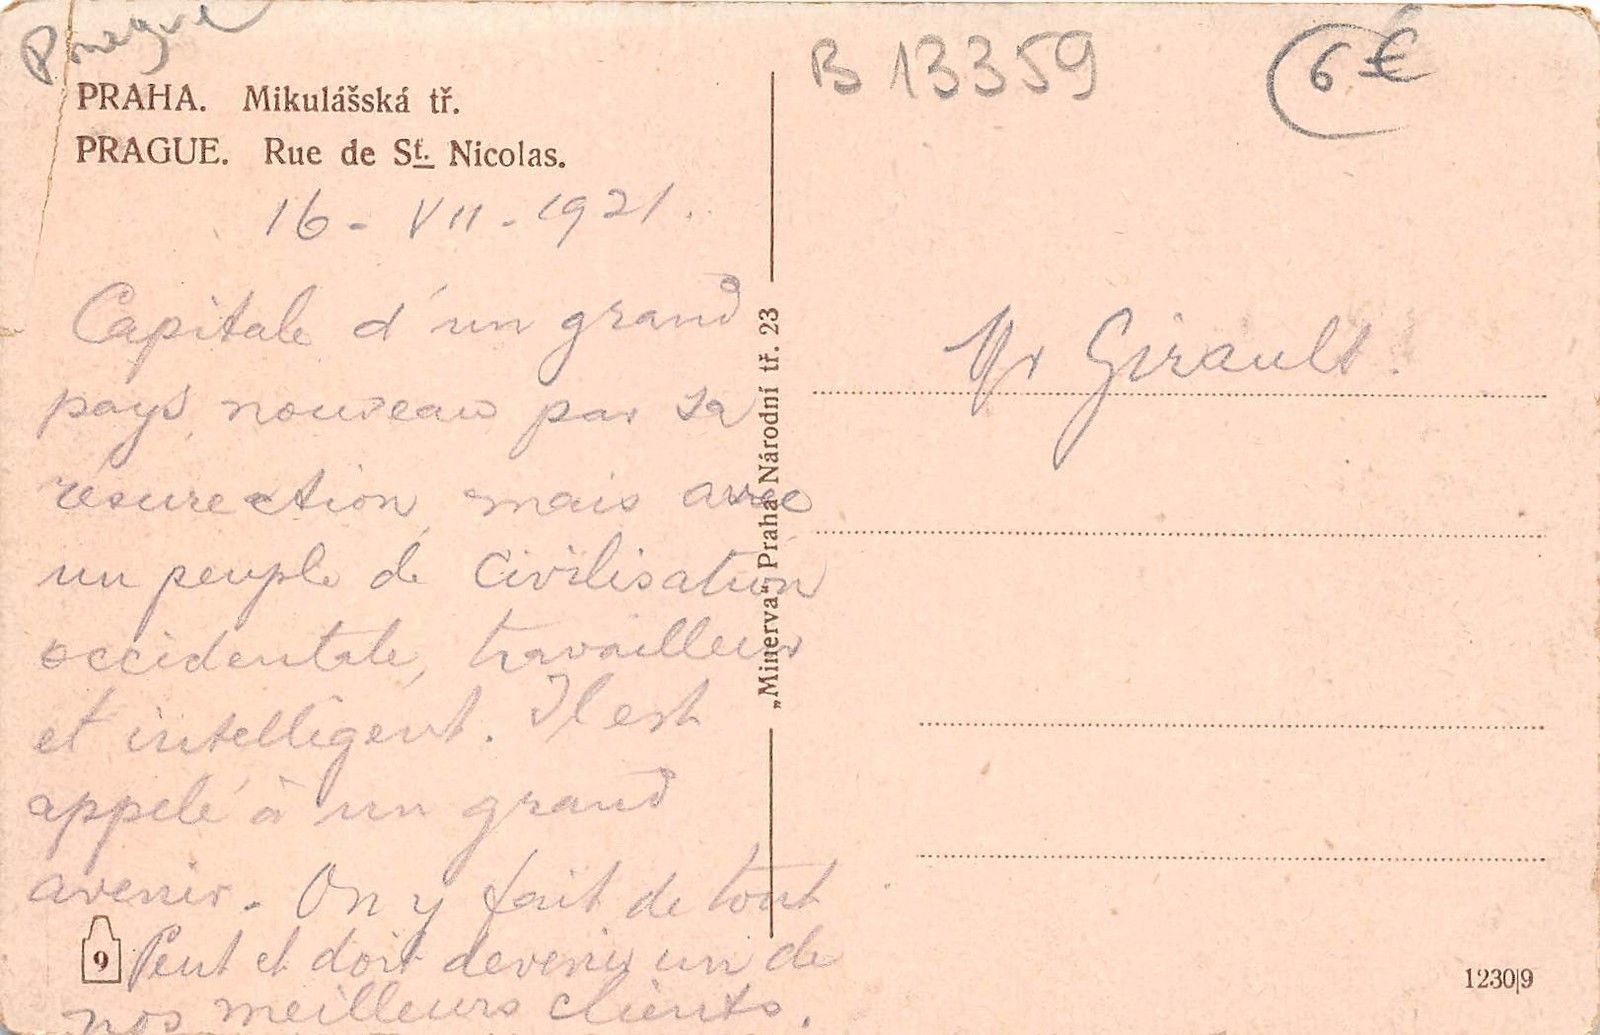 Prague
B 13359
6 €
PRAHA. Mikulášská tř.
PRAGUE. Rue de St. Nicolas.
16 - VII - 1921.
Capitale d'un grand
pays, nouveau par sa
résurection, mais avec
un peuple de civilisation
occidentale, travailleur
et intelligent. Il est
appelé à un grand
avenir. On y fait de tout
Peut et doit devenir un de
nos meilleurs clients.
9
„Minerva“ Praha Národní tř. 23
Mr Girault.
1230|9